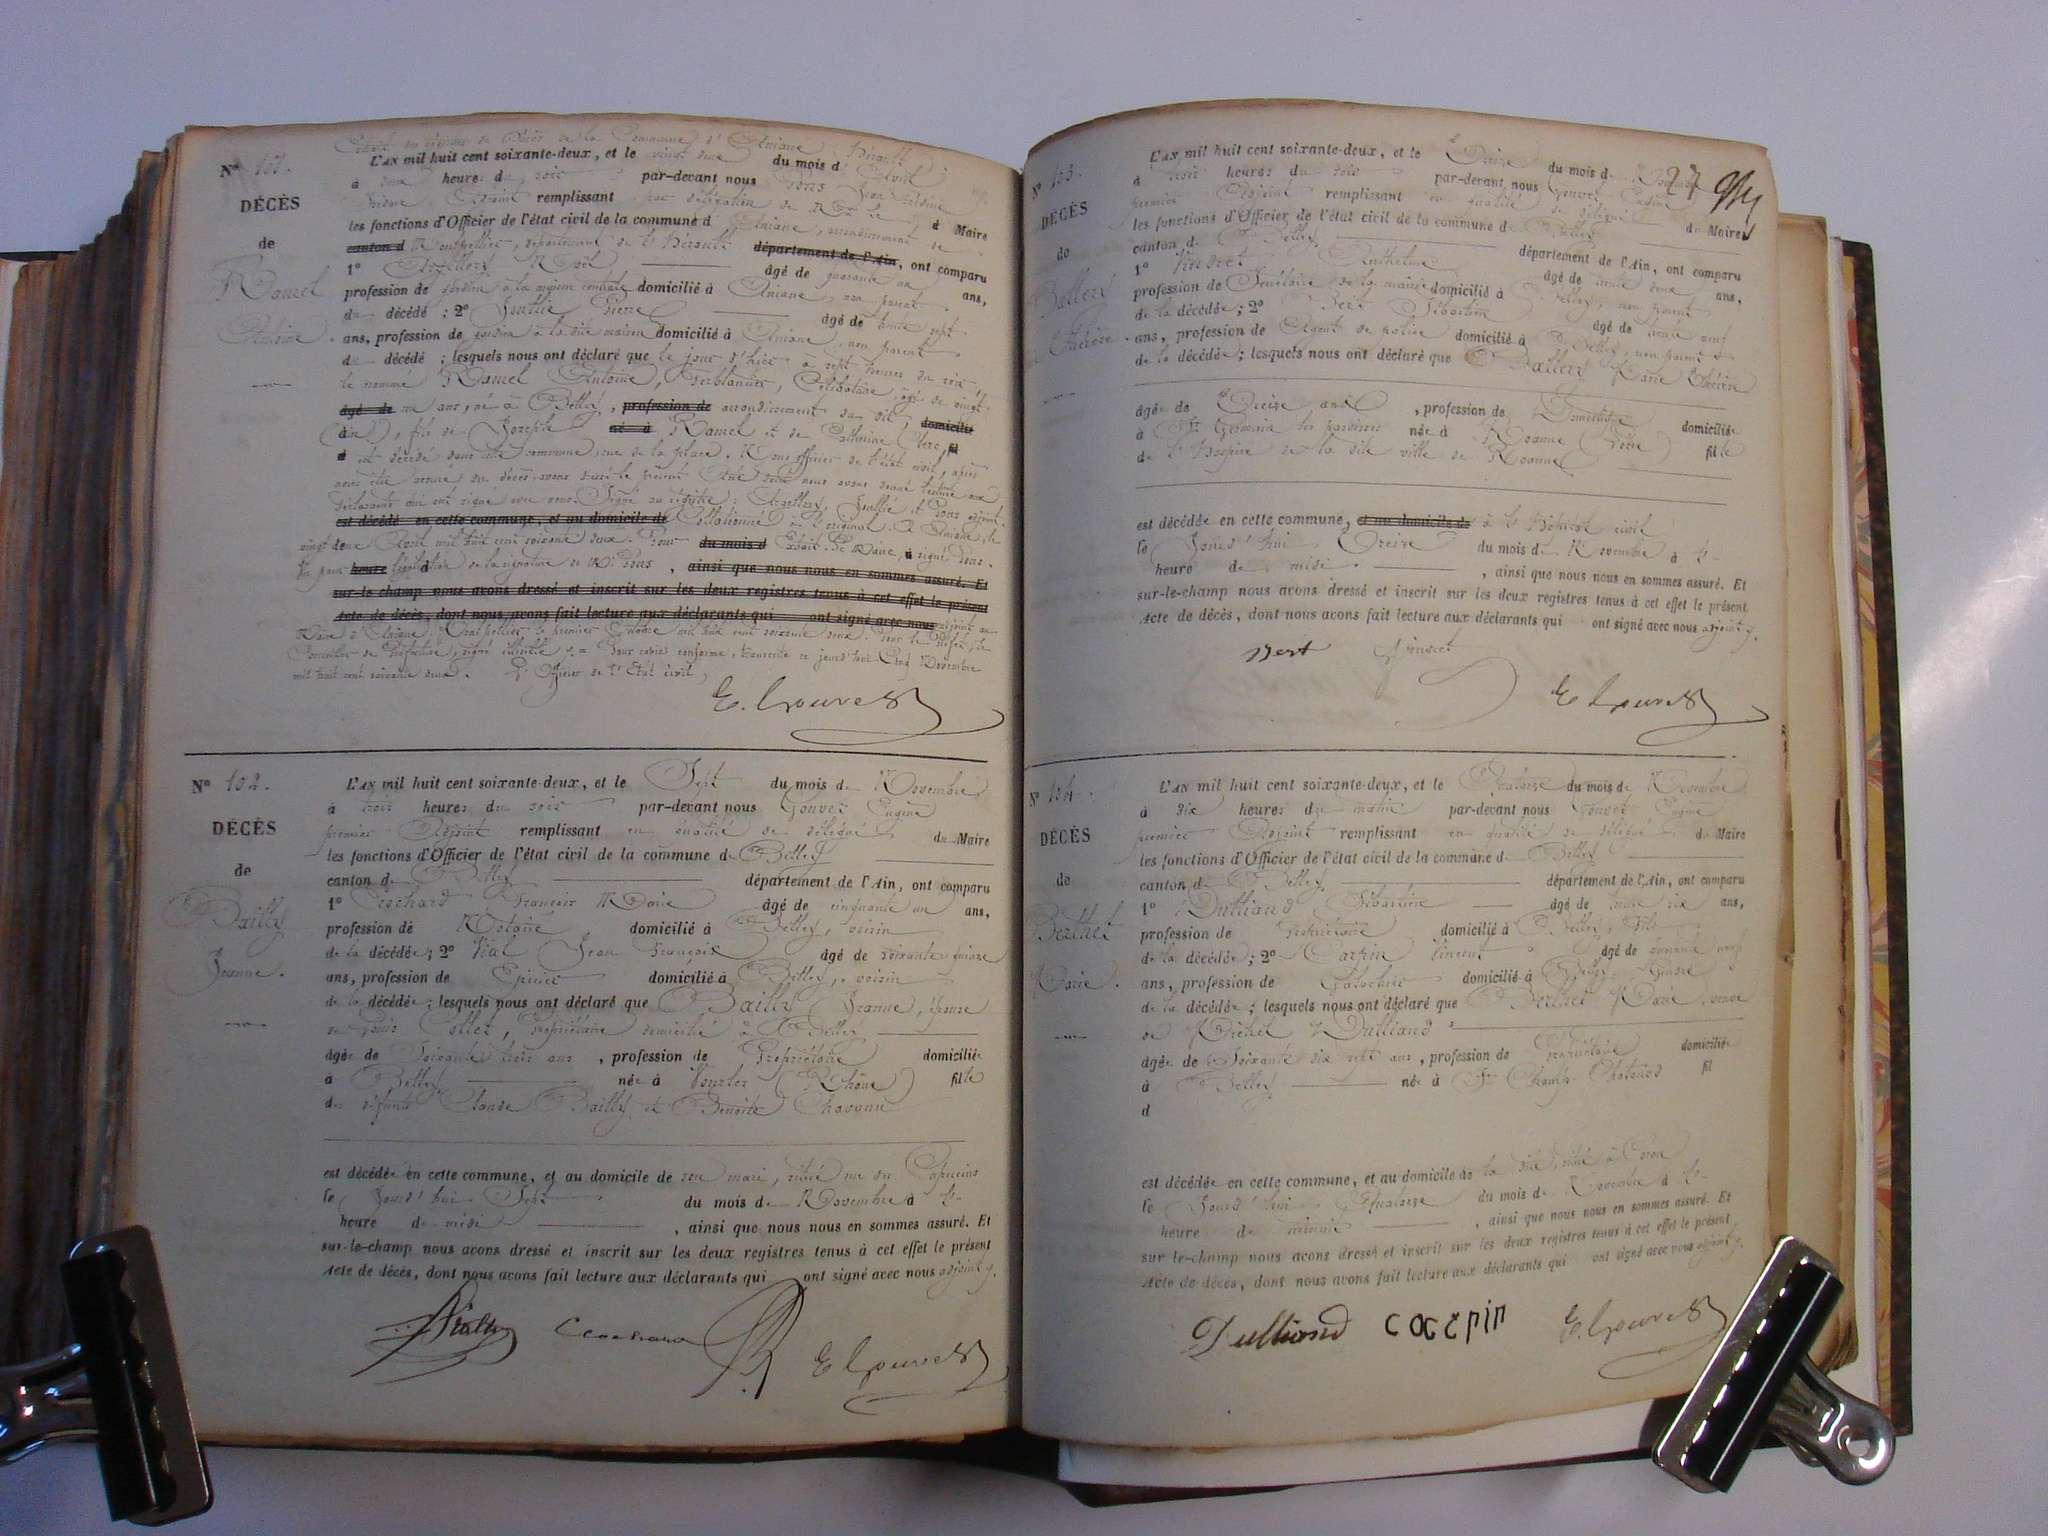 de la Commune d'Aniane Hérault
N° 101. L'AN mil huit cent soixante-deux, et le vingt deux du mois d'Avril
à deux heures du soir par-devant nous Pons
DÉCÈS Adjoint remplissant par délégation de d Maire
les fonctions d'Officier de l'état civil de la commune d'Aniane, arrondissement de
de canton d Montpellier, département de l'Hérault département de l'Ain, ont comparu
1° Noël âgé de quarante un ans,
Ramel profession de gardien à la maison centrale domicilié à Aniane, non parent
du décédé ; 2° Pierre âgé de trente sept
Antoine. ans, profession de gardien à la dite maison domicilié à Aniane, non parent
du décédé ; lesquels nous ont déclaré que le jour d'hier à sept heures du soir,
le nommé Ramel Antoine, Ferblantier, Célibataire, âgé de vingt
âgé de un ans, né à Belley, profession de arrondissement du dit, domicilié
à (Ain), fils de Joseph né à Ramel et de Clerc, fil
d est décédé dans cette commune, rue de la place. Nous officier de l'état civil, après
nous être assuré du décès, avons dressé le présent Acte dont nous avons donné lecture aux
déclarants qui ont signé avec nous. Signé au registre : et Pons adjoint.
est décédé en cette commune, et au domicile de Collationné à l'original. à Aniane, le
vingt deux Avril mil huit cent soixante deux. Pour du mois d Extrait. Le Maire, à signé Pons.
Vu pour heure légalisation d de la signature de M. Pons , ainsi que nous nous en sommes assuré. Et
sur-le-champ nous avons dressé et inscrit sur les deux registres tenus à cet effet le présent
Acte de décès, dont nous avons fait lecture aux déclarants qui ont signé avec nous adjoint au
Maire d'Aniane. Montpellier le premier Octobre mil huit cent soixante deux. Pour le Préfet, le
Conseiller de Préfecture, signé illisible. = Pour copie conforme, transcrite ce jourd'hui Cinq Novembre
mil huit cent soixante deux. L'Officier de l'Etat civil,
E. Gouvet
N° 102. L'AN mil huit cent soixante-deux, et le Sept du mois de Novembre
à trois heures du soir par-devant nous Gouvet Eugène
DÉCÈS premier Adjoint remplissant en qualité de délégué du Maire
les fonctions d'Officier de l'état civil de la commune de Belley
de canton de Belley département de l'Ain, ont comparu
1° Crochard François Marie âgé de cinquante un ans,
Bailly profession de Notaire domicilié à Belley, voisin
de la décédée; 2° Vial Jean François âgé de soixante quinze
Jeanne. ans, profession de Epicier domicilié à Belley, voisin
de la décédée ; lesquels nous ont déclaré que Bailly Jeanne, épouse
de Louis Collet, Propriétaire domicilié à Belley
âgée de Soixante trois ans , profession de Propriétaire domiciliée
à Belley née à Vourles (Rhône) fille
de défunts Claude Bailly et Benoite Chavanne
est décédée en cette commune, et au domicile de son mari, situé rue des Capucins
le Jourd'hui Sept du mois de Novembre à l'
heure de midi , ainsi que nous nous en sommes assuré. Et
sur-le-champ nous avons dressé et inscrit sur les deux registres tenus à cet effet le présent
Acte de décès, dont nous avons fait lecture aux déclarants qui ont signé avec nous adjoint.
Vial Crochard E Gouvet
27
N° 103. L'AN mil huit cent soixante-deux, et le Treize du mois de Novembre
à trois heures du soir par-devant nous Gouvet Eugène
DÉCÈS premier Adjoint remplissant en qualité de délégué du Maire
les fonctions d'Officier de l'état civil de la commune de Belley
de canton de Belley département de l'Ain, ont comparu
1° Vindret Anthelme âgé de trente deux ans,
Ballery profession de Secrétaire de la mairie domicilié à Belley, non parent
de la décédée ; 2° Vert Sébastien âgé de trente neuf
Thérèse. ans, profession de Agent de police domicilié à Belley, non parent
de la décédée; lesquels nous ont déclaré que Ballery Marie Thérèse
âgée de Treize ans , profession de Domestique domiciliée
à St Germain les paroisses née à Roanne (Loire) fille
de l'Hospice de la dite ville de Roanne
est décédée en cette commune, et au domicile de à l'Hôpital civil
le Jourd'hui Treize du mois de Novembre à l'
heure de midi , ainsi que nous nous en sommes assuré. Et
sur-le-champ nous avons dressé et inscrit sur les deux registres tenus à cet effet le présent
Acte de décès, dont nous avons fait lecture aux déclarants qui ont signé avec nous adjoint.
Vert Vindret E Gouvet
N° 104. L'AN mil huit cent soixante-deux, et le Quatorze du mois de Novembre
à dix heures du matin par-devant nous Gouvet Eugène
DÉCÈS premier Adjoint remplissant en qualité de délégué du Maire
les fonctions d'Officier de l'état civil de la commune de Belley
de canton de Belley département de l'Ain, ont comparu
1° Dulliand Sébastien âgé de trente six ans,
Berthet profession de Propriétaire domicilié à Belley, fils
de la décédée; 2° Carpin Vincent âgé de quarante neuf
Marie. ans, profession de Galochier domicilié à Belley, Gendre
de la décédée ; lesquels nous ont déclaré que Berthet Marie, veuve
de Michel Dulliand
âgée de Soixante dix sept ans , profession de Propriétaire domiciliée
à Belley née à St Champ Chatonod fil
d
est décédée en cette commune, et au domicile de la dite, situé à Coron
le Jourd'hui Quatorze du mois de Novembre à l'
heure de minuit , ainsi que nous nous en sommes assuré. Et
sur le-champ nous avons dressé et inscrit sur les deux registres tenus à cet effet le présent
Acte de décès, dont nous avons fait lecture aux déclarants qui ont signé avec nous adjoint.
Dulliand E. Gouvet